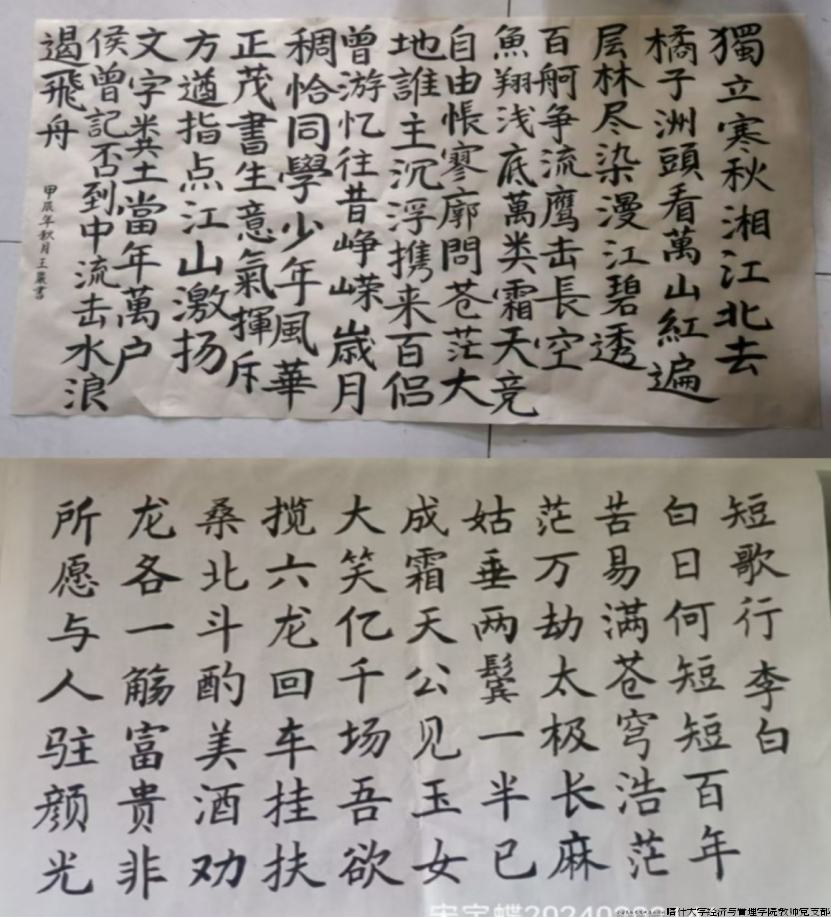 獨立寒秋湘江北去
橘子洲頭看萬山紅遍
层林尽染漫江碧透
百舸争流鹰击長空
魚翔浅底萬类霜天竞
自由悵寥廓問苍茫大
地誰主沉浮携来百侣
曾游忆往昔峥嵘歲月
稠恰同學少年風華
正茂書生意氣揮斥
方遒指点江山激扬
文字粪土當年萬户
侯曾記否到中流击水浪
遏飛舟
甲辰年秋月王巖書
短歌行李白
白日何短短百年
苦易满苍穹浩茫
茫万劫太极长麻
姑垂两鬓一半已
成霜天公见玉女
大笑亿千场吾欲
揽六龙回车挂扶
桑北斗酌美酒劝
龙各一觞富贵非
所愿与人驻颜光
喀什大学经济与管理学院教师党支部